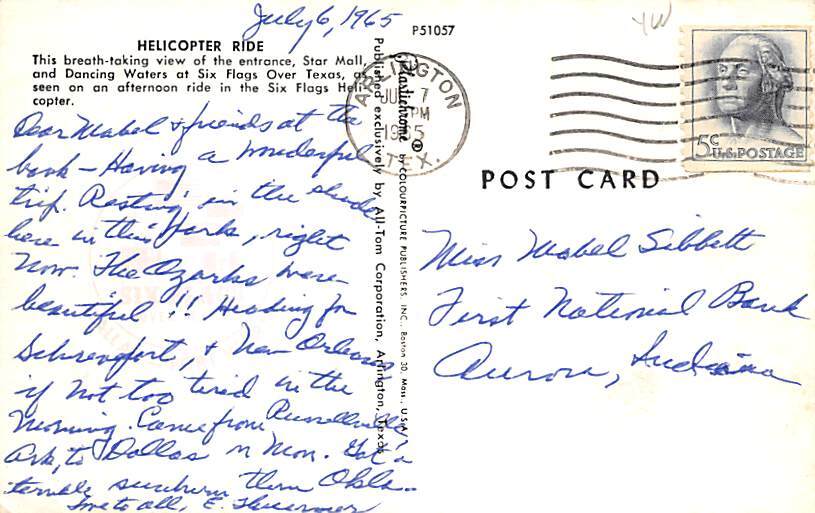 July 6, 1965
P51057
HELICOPTER RIDE
This breath-taking view of the entrance, Star Mall,
and Dancing Waters at Six Flags Over Texas, as
seen on an afternoon ride in the Six Flags Heli-
copter.
Dear Mabel & friends at the
bank - Having a wonderful
trip. Resting in the shade
here in this park, right
now. The Ozarks were
beautiful !! Heading for
Schreveport, & New Orleans,
if not too tired in the
morning. Came from Russellville
Ark, to Dallas on Mon. Got a
terrible sunburn thru Okla.
Love to all, E.
Plastichrome ® by COLOURPICTURE PUBLISHERS, INC., Boston 30, Mass., U.S.A.
Published exclusively by All-Tom Corporation, Arlington, Texas
ARLINGTON
JUL 7
PM
1965
TEX.
5¢
U.S. POSTAGE
POST CARD
Miss Mabel Sibbett
First National Bank
Aurora, Indiana